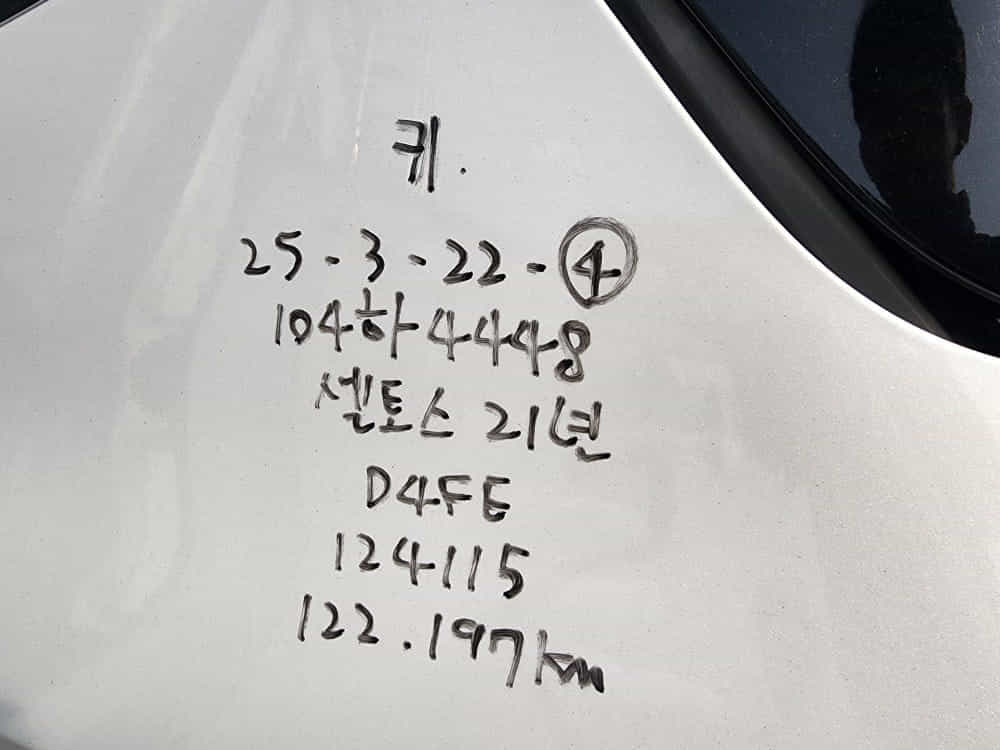 키.
25-3-22-④
104하4448
셀토스 21년
D4FE
124115
122.197km